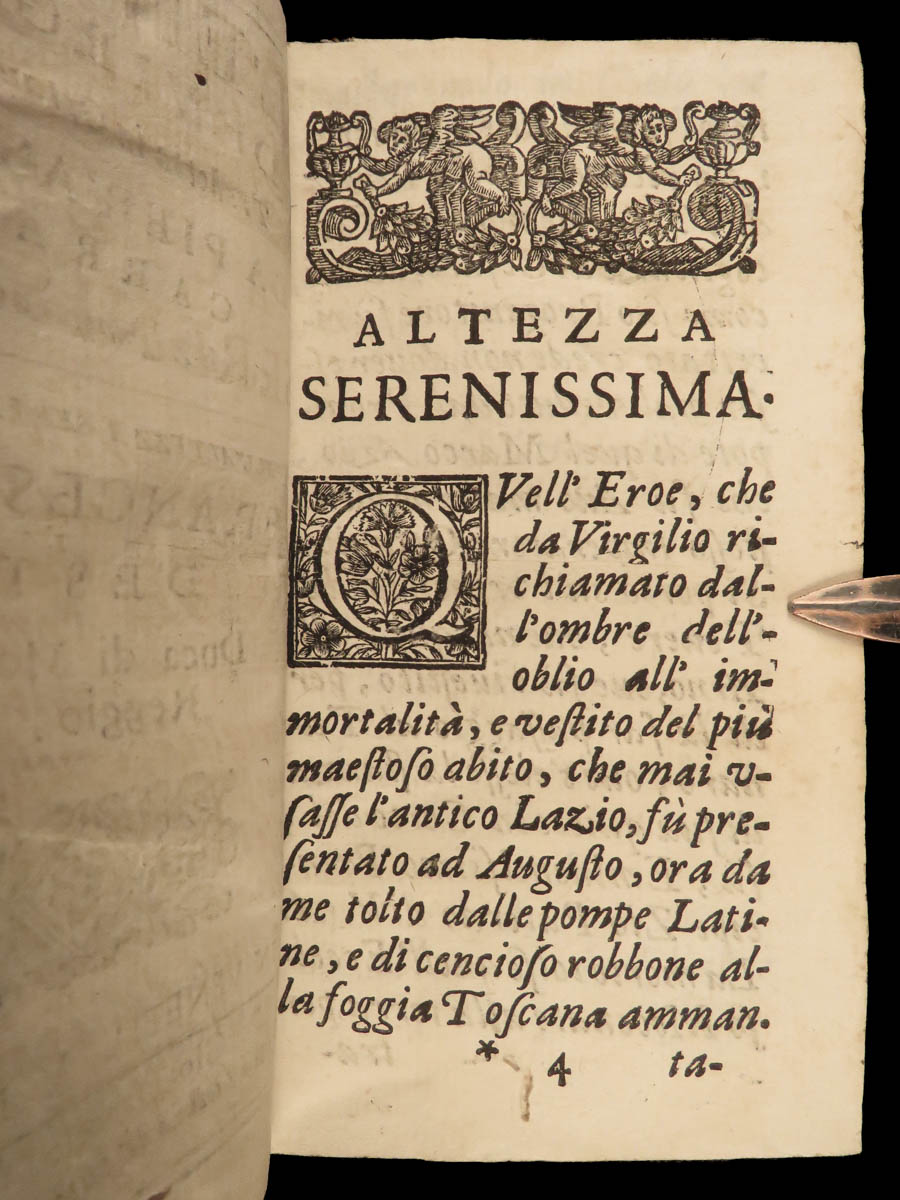 ALTEZZA
SERENISSIMA.
QVell' Eroe, che
da Virgilio ri-
chiamato dal-
l'ombre dell'-
oblio all' im-
mortalità, e veſtito del più
maeſtoſo abito, che mai v-
ſaſſe l'antico Lazio, fù pre-
ſentato ad Auguſto, ora da
me tolto dalle pompe Lati-
ne, e di cencioſo robbone al-
la foggia Toſcana amman-
* 4 ta-